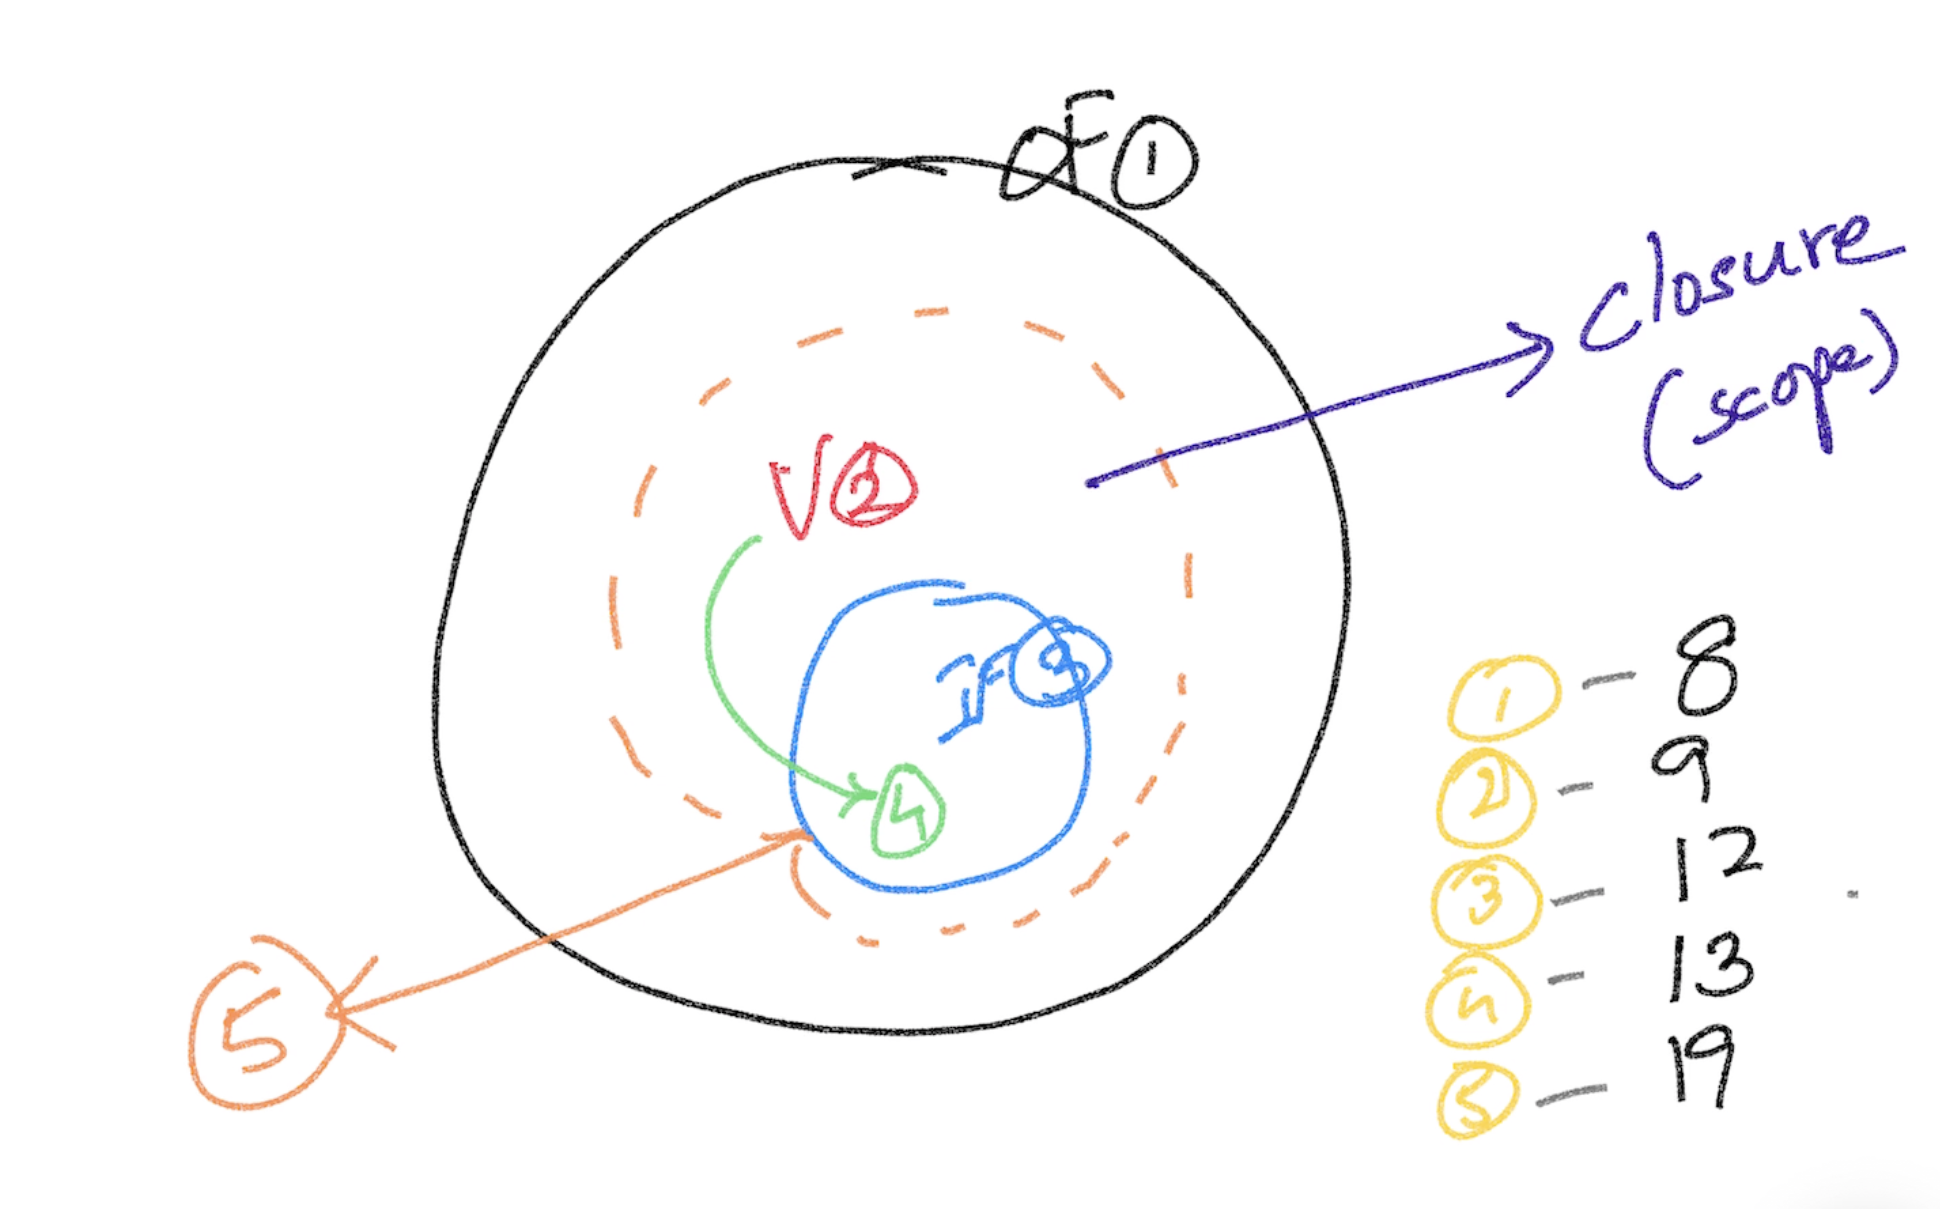 OF 1
closure
(scope)
V 2
IF 3
4
5
1 - 8
2 - 9
3 - 12
4 - 13
5 - 19